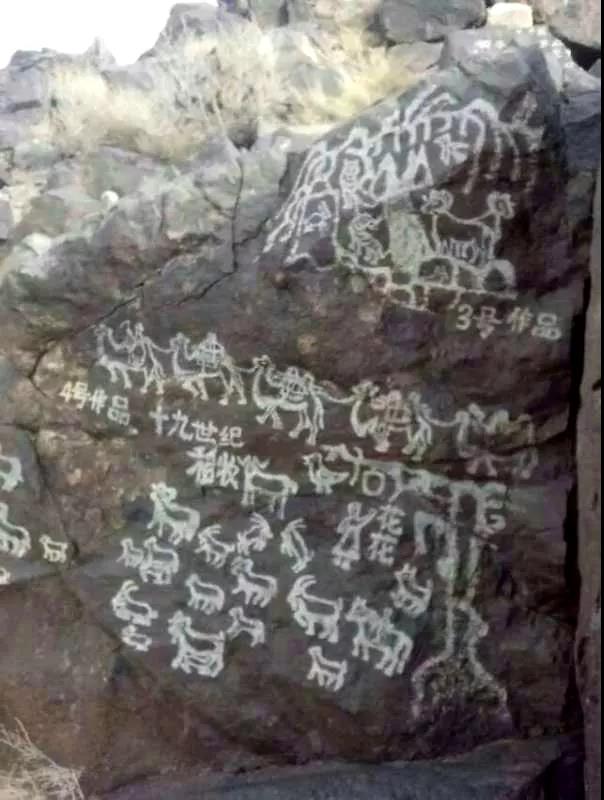 3号作品
4号作品.
十九世纪
花花